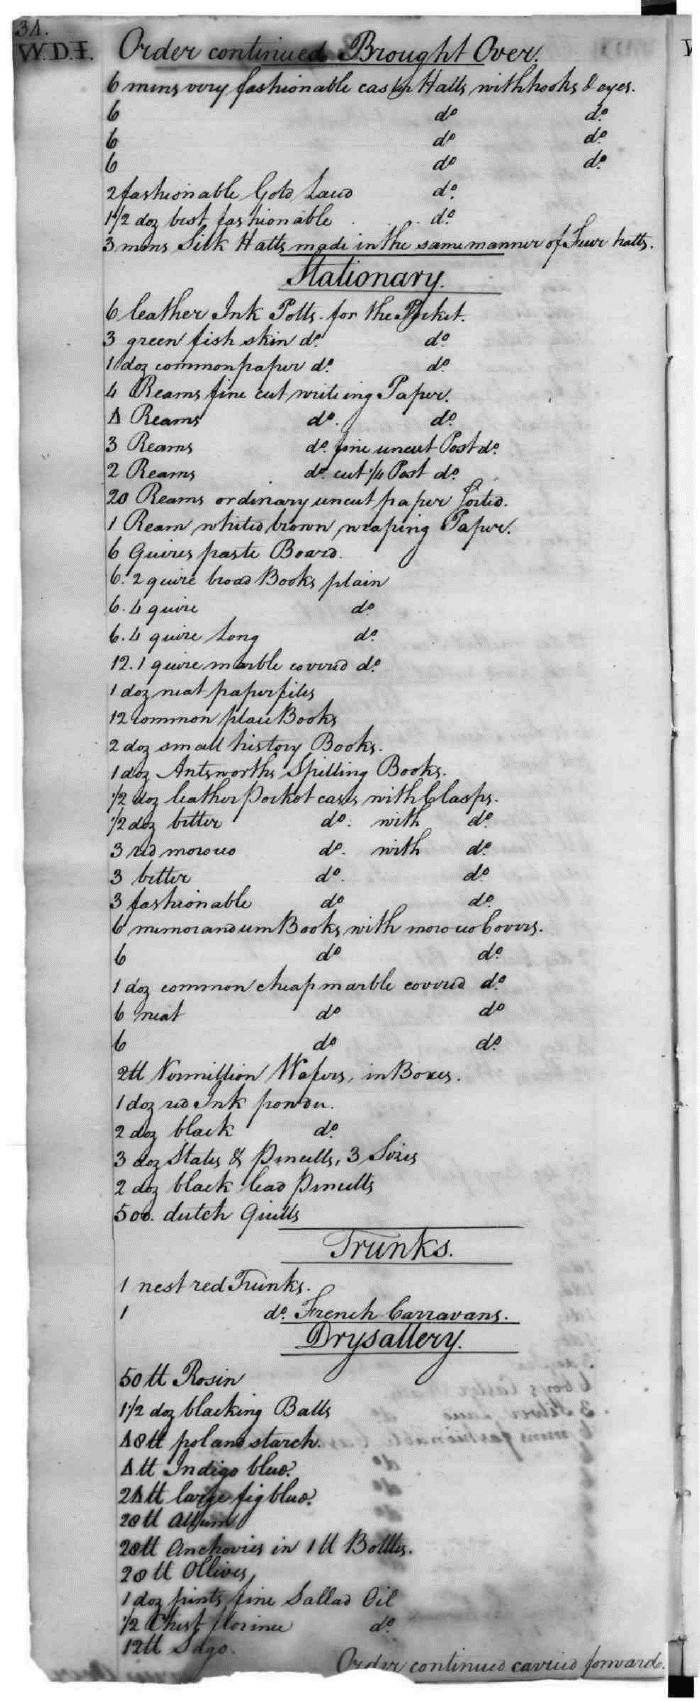 34.
W.D.I. Order continued Brought Over.
6 mens very fashionable castor Hatts with hooks & eyes.
6 do do
6 do do
6 do do
2 fashionable Gold Laced do
1 1/2 doz best fashionable do
3 mens Silk Hatts made in the same manner of Furr hatts.
Stationary.
6 leather Ink Potts for the Pocket.
3 green fish skin do do
1 doz common paper do do
4 Reams fine cut writeing Paper.
4 Reams do do
3 Reams do fine uncut Post do
2 Reams do cut 1/4 Post do
20 Reams ordinary uncut paper sorted.
1 Ream whited brown wraping Paper.
6 Quires paste Board.
6. 2 quire broad Books plain
6. 4 quire do
6. 4 quire Long do
12. 1 quire marble covered do
1 doz neat paper files
12 common place Books
2 doz small history Books.
1 doz Spelling Books.
1/2 doz leather Pocket cases with Clasps.
1/2 doz better do with do
3 red morocco do with do
3 better do do
3 fashionable do do
6 memorandum Books with morocco Covers.
6 do do
1 doz common cheap marble covered do
6 neat do do
6 do do
2 lb Vermillion Wafers, in Boxes.
1 doz red Ink powder.
2 doz black do
3 doz Slates & Pincells, 3 Sizes
2 doz black lead Pincells
500. dutch Quills
Trunks.
1 nest red Trunks.
1 do French Carravans.
Drysaltery.
50 lb Rosin
1 1/2 doz blacking Balls
48 lb poland starch.
4 lb Indigo blue.
24 lb large fig blue.
28 lb Allum
28 lb Anchovies in 1 lb Bottles.
28 lb Ollives
1 doz pints fine Sallad Oil
1/2 Chest florince do
12 lb Sago.
Order continued carried forward.